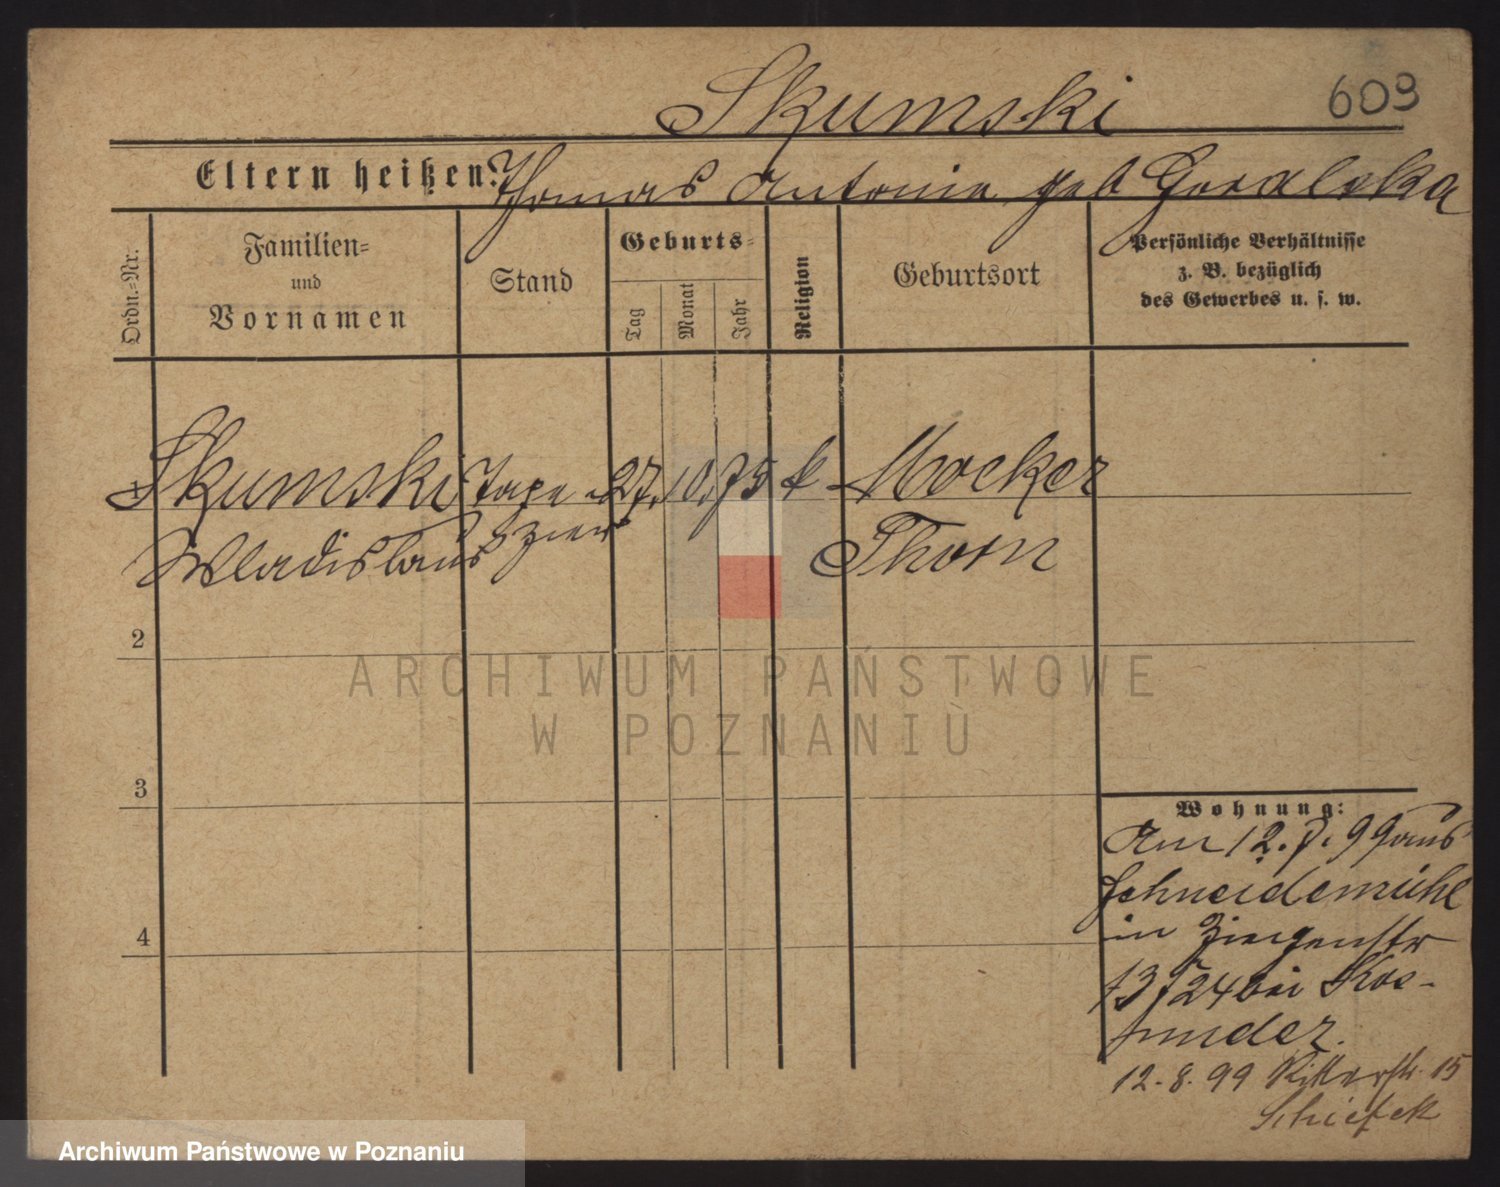 Skumski
603
Eltern heißen: Thomas Antonie geb Goralska
Ordn.=Nr.
Familien=
und
Vornamen
Stand
Geburts=
Tag
Monat
Jahr
Religion
Geburtsort
Persönliche Verhältnisse
z. B. bezüglich
des Gewerbes u. s. w.
1 Skumski Tape 27. 10. 75 k Mocker
Wladislaus zier Thorn
2
3
4
Wohnung:
Am 12. 7. 99 aus
Schneidemühl
in
13 bei
12. 8. 99 Ritterstr. 15
ARCHIWUM PAŃSTWOWE
W POZNANIU
Archiwum Państwowe w Poznaniu